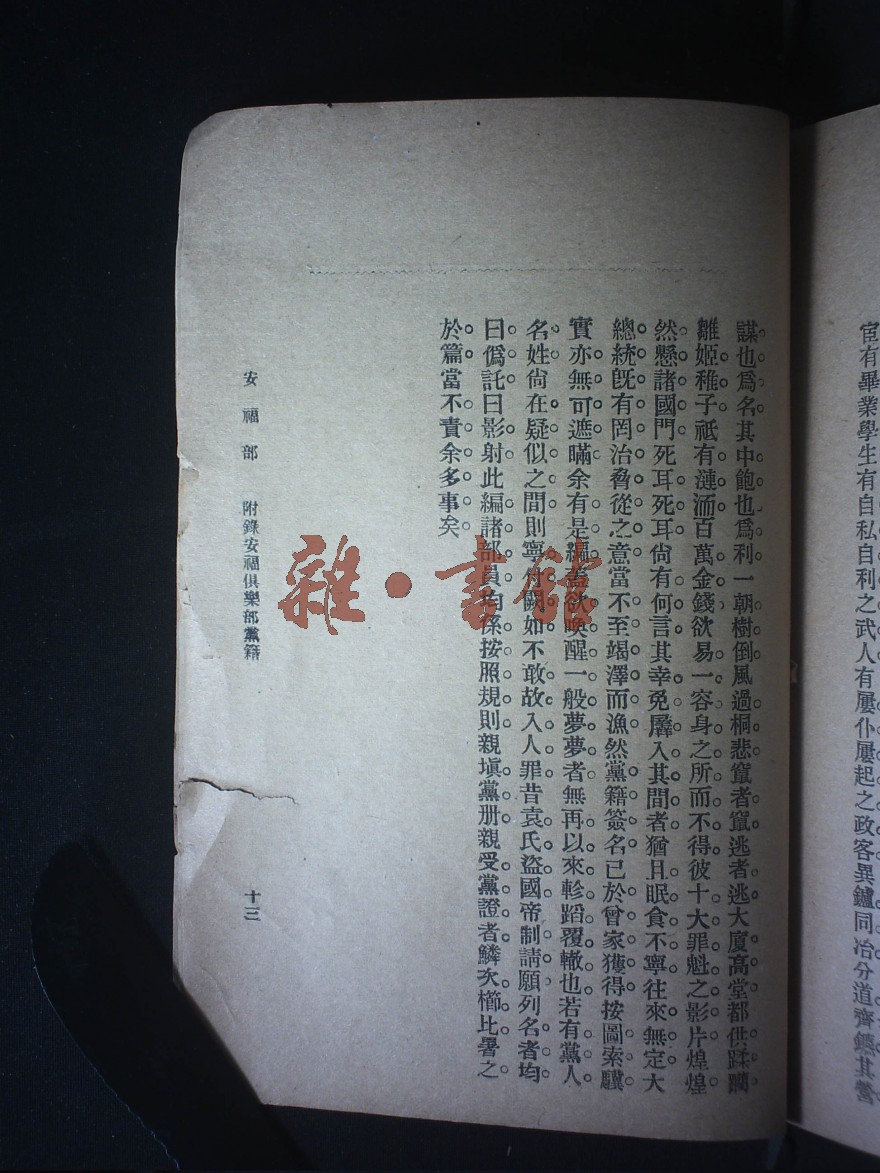 宦有畢業學生有自私自利之武人有屢仆屢起之政客異鑪同冶分道齊鑣其營
謀也爲名其中飽也爲利一朝樹倒風過桐悲竄者竄逃者逃大廈高堂都供蹂躪
雛姬稚子祇有漣洏百萬金錢欲易一容身之所而不得彼十大罪魁之影片煌煌
然懸諸國門死耳死耳尙有何言其幸免羼入其間者猶且眠食不寧往來無定大
總統旣有罔治脅從之意當不至竭澤而漁然黨籍簽名已於曾家獲得按圖索驥
實亦無可遮瞞余有是編蓋欲喚醒一般夢夢者無再以來軫蹈覆轍也若有黨人
名姓尙在疑似之間則寧付闕如不敢故入人罪昔袁氏盜國帝制請願列名者均
曰僞託曰影射此編諸部員均係按照規則親塡黨册親受黨證者鱗次櫛比暑之
於篇當不責余多事矣
安福部 附錄安福俱樂部黨籍 十三
雜·書館